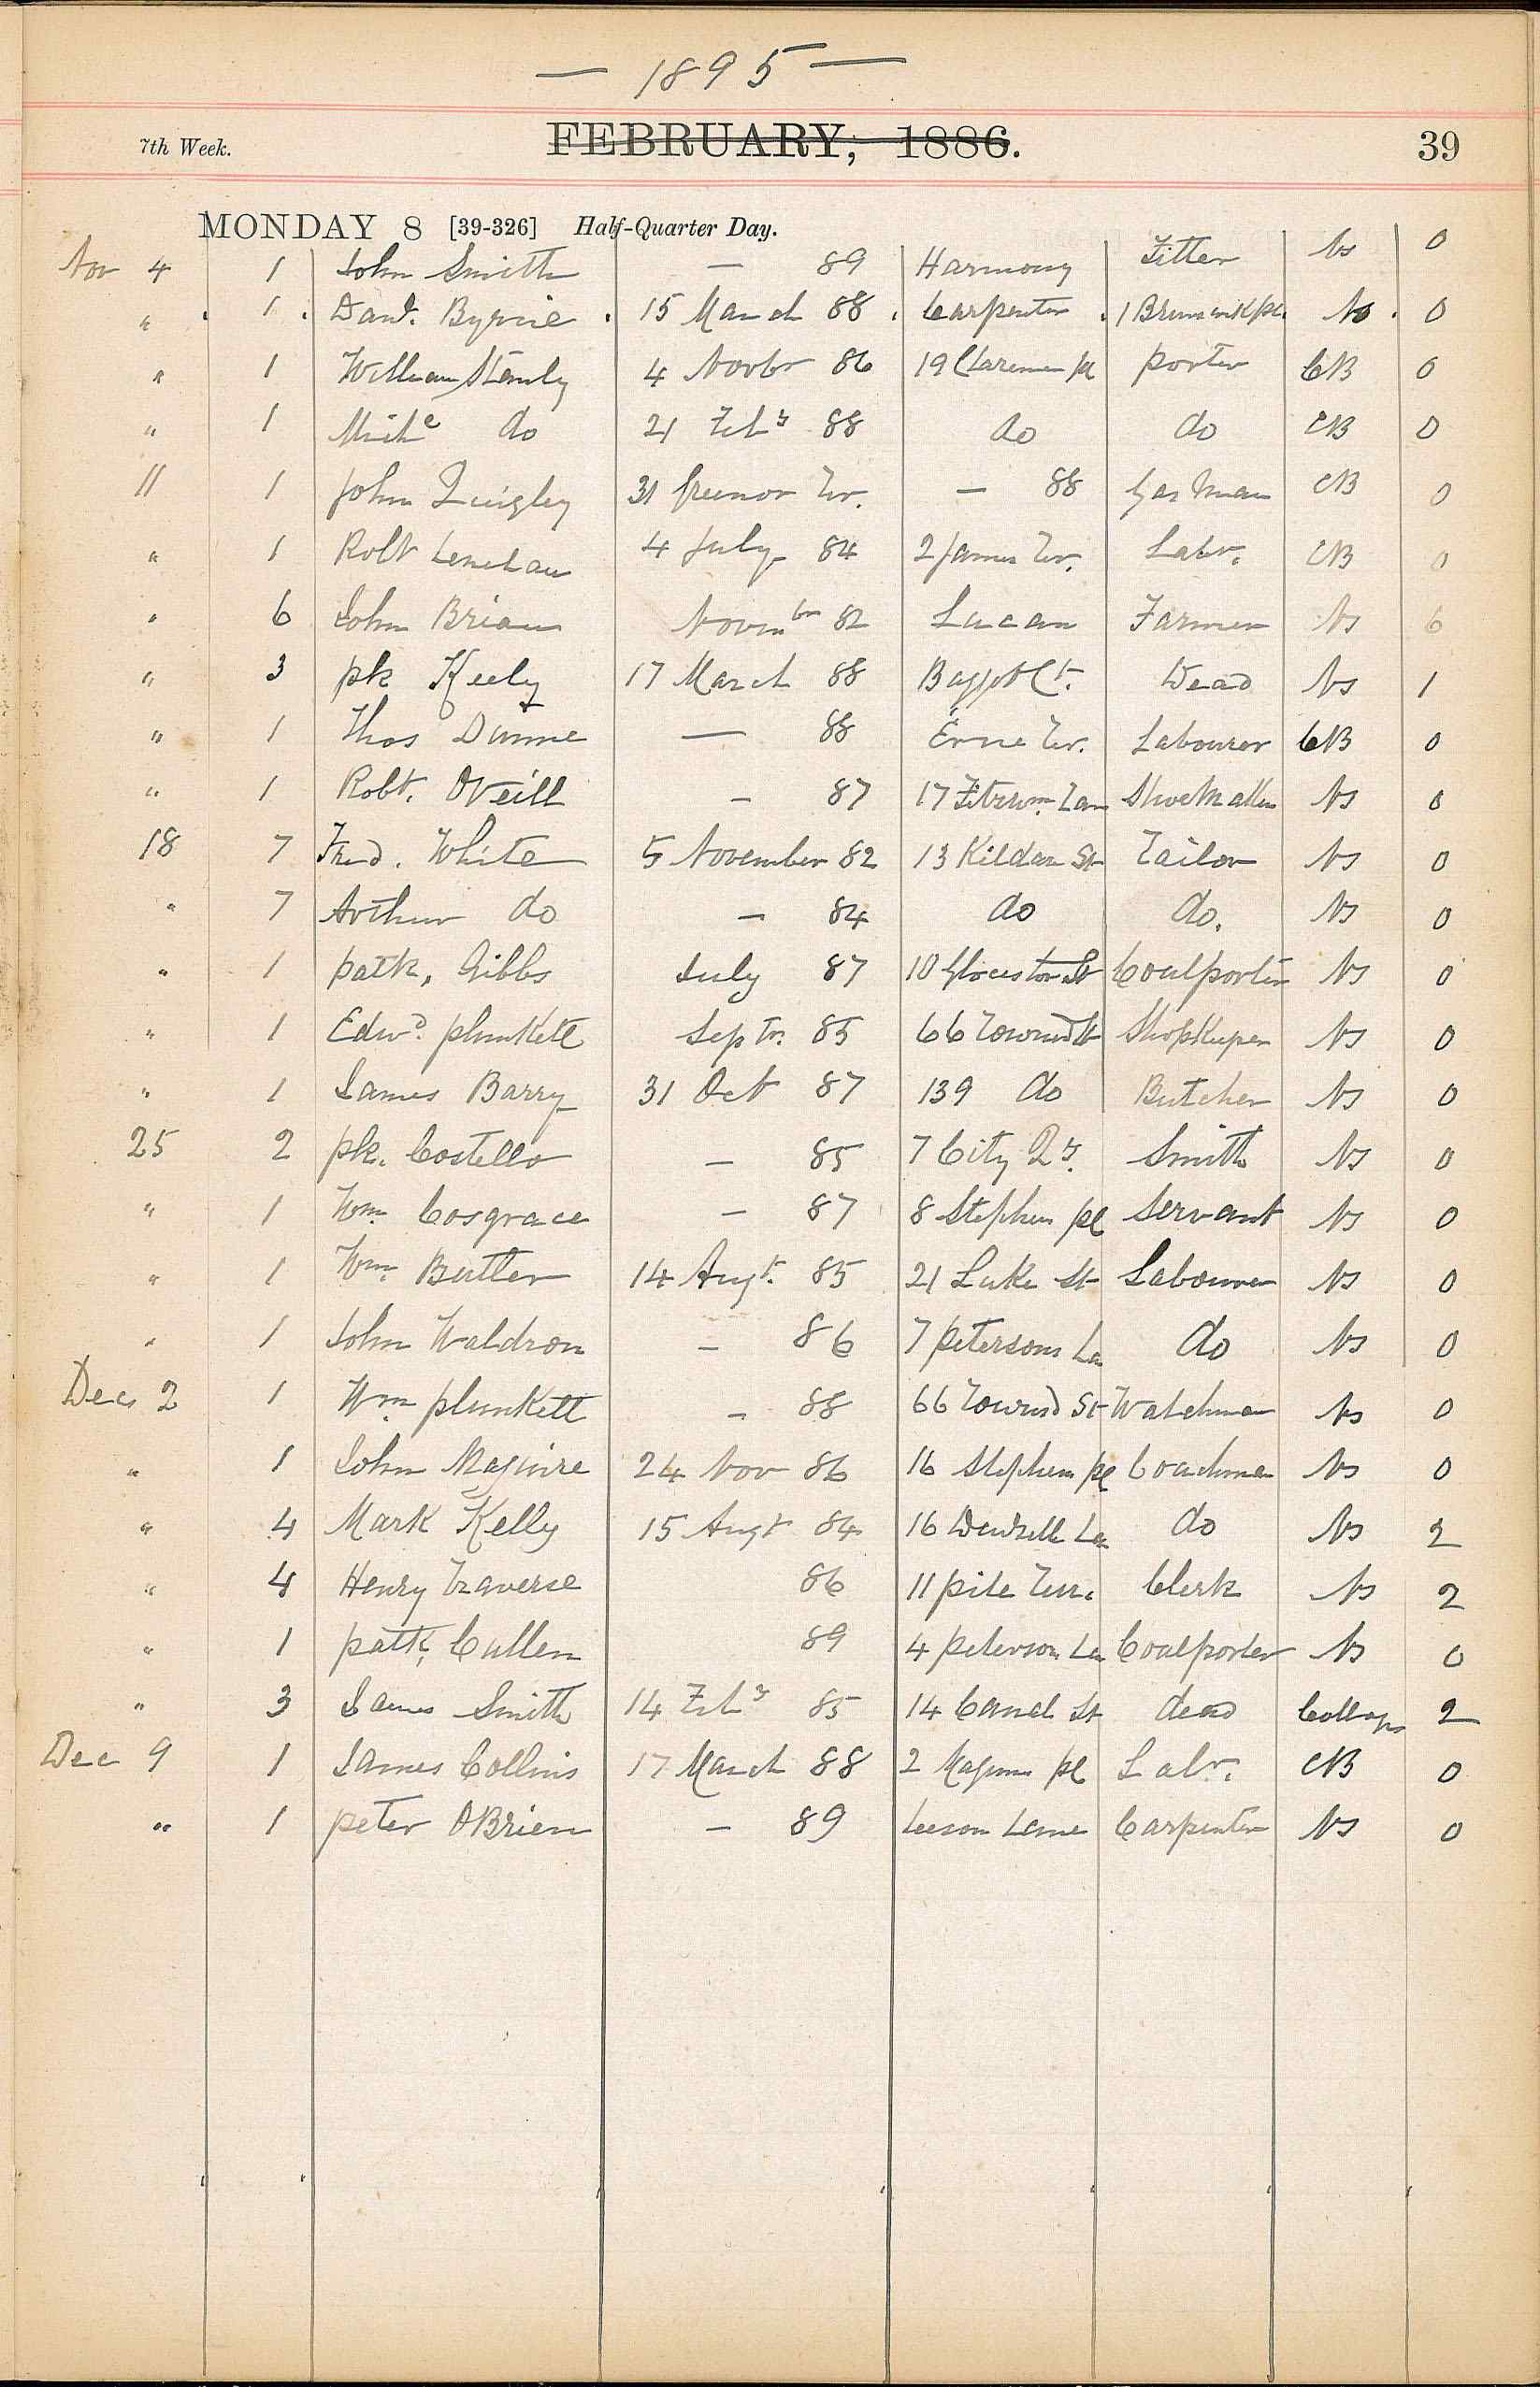 — 1895 —
7th Week. FEBRUARY, 1886. 39
MONDAY 8 [39-326] Half-Quarter Day.
Nov 4 1 John Smith — 89 Harmony Fitter Ns 0
" 1 Danl. Byrne 15 March 88 Carpenter 1 Brunswick pl. No 0
" 1 William Stanly 4 Novbr 86 19 Claremen pl porter CB 0
" 1 Miche do 21 Feby 88 do do CB 0
11 1 John Quigley 31 Greenor Ter. — 88 Gas Man CB 0
" 1 Robt Lenehan 4 July 84 2 James Ter. Labr. CB 0
" 6 John Brian Novmbr 82 Lucan Farmer Ns 6
" 3 pk Keely 17 March 88 Baggot Ct. Dead Ns 1
" 1 Thos Dunne — 88 Erne Ter. Labourer CB 0
" 1 Robt. ONeill — 87 17 Fitzwm. Lan Shoe Maker Ns 0
18 7 Fred. White 5 November 82 13 Kildare St Tailor Ns 0
" 7 Arthur do — 84 do do. Ns 0
" 1 patk. Gibbs July 87 10 Glocestor St Coalporter Ns 0
" 1 Edwd. plunkett Septr. 85 66 Townsd St Shopkeeper Ns 0
" 1 James Barry 31 Oct 87 139 do Butcher Ns 0
25 2 pk. Costello — 85 7 City Qy. Smith Ns 0
" 1 Wm. Cosgrace — 87 8 Stephen pl Servant Ns 0
" 1 Wm. Butler 14 Augt. 85 21 Luke St Labourer Ns 0
" 1 John Waldron — 86 7 petersons La do Ns 0
Dec 2 1 Wm plunkett — 88 66 Townsd St Watchman Ns 0
" 1 John Maguire 24 Nov 86 16 Stephen pl Coachman Ns 0
" 4 Mark Kelly 15 Augt 84 16 La do Ns 2
" 4 Henry Traverse 86 11 pile Terr. Clerk Ns 2
" 1 patk. Cullen 89 4 peterson La Coalporter Ns 0
" 3 James Smith 14 Feby 85 14 Canal St dead 2
Dec 9 1 James Collins 17 March 88 2 Magennis pl Labr. CB 0
" 1 peter OBrien — 89 Leeson Lane Carpenter Ns 0